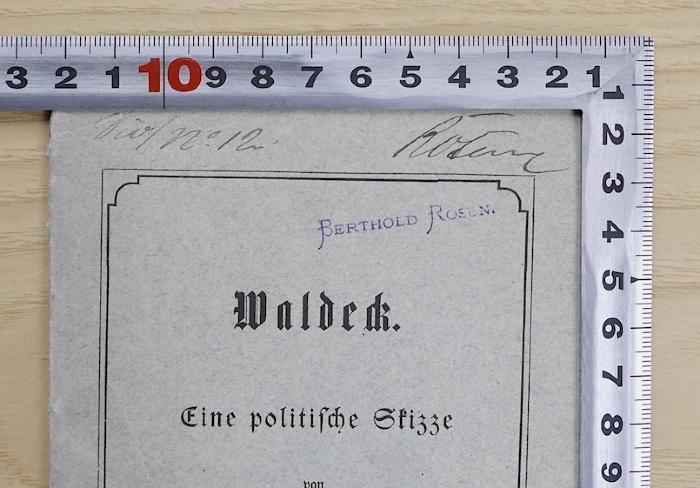 3 2 1 10 9 8 7 6 5 4 3 2 1
1
2
3
4
5
6
7
8
9
No 12
Rosen
BERTHOLD ROSEN.
Waldeck.
Eine politiſche Skizze
von